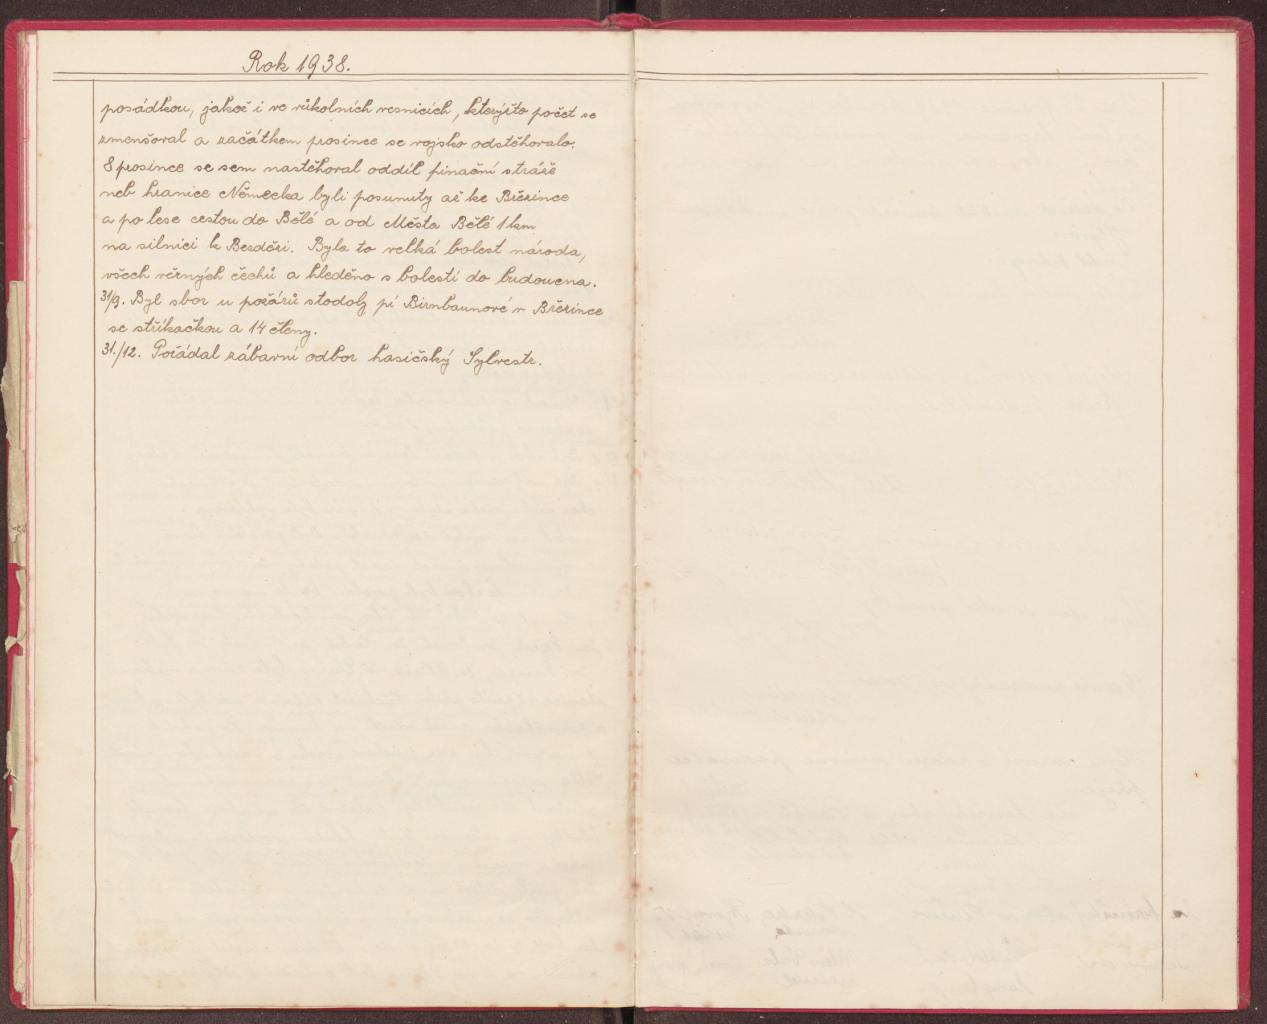 Rok 1938.
posádkou, jakož i ve vůkolních vesnicích, kterýžto počet se
zmenšoval a začátkem prosince se vojsko odstěhovalo.
8 prosince se sem nastěhoval oddíl finační stráže
neb hranice Německa byli posunuty až ke Březince
a po lese cestou do Bělé a od Města Bělé 1 km
na silnici k Bezdězi. Byla to velká bolest národa,
všech věrných čechů a hleděno s bolestí do budoucna.
31/9. Byl sbor u požárů stodoly pí Birnbaunové v Březince
se stříkačkou a 14 členy.
31./12. Pořádal zábavní odbor hasičský Sylvestr.